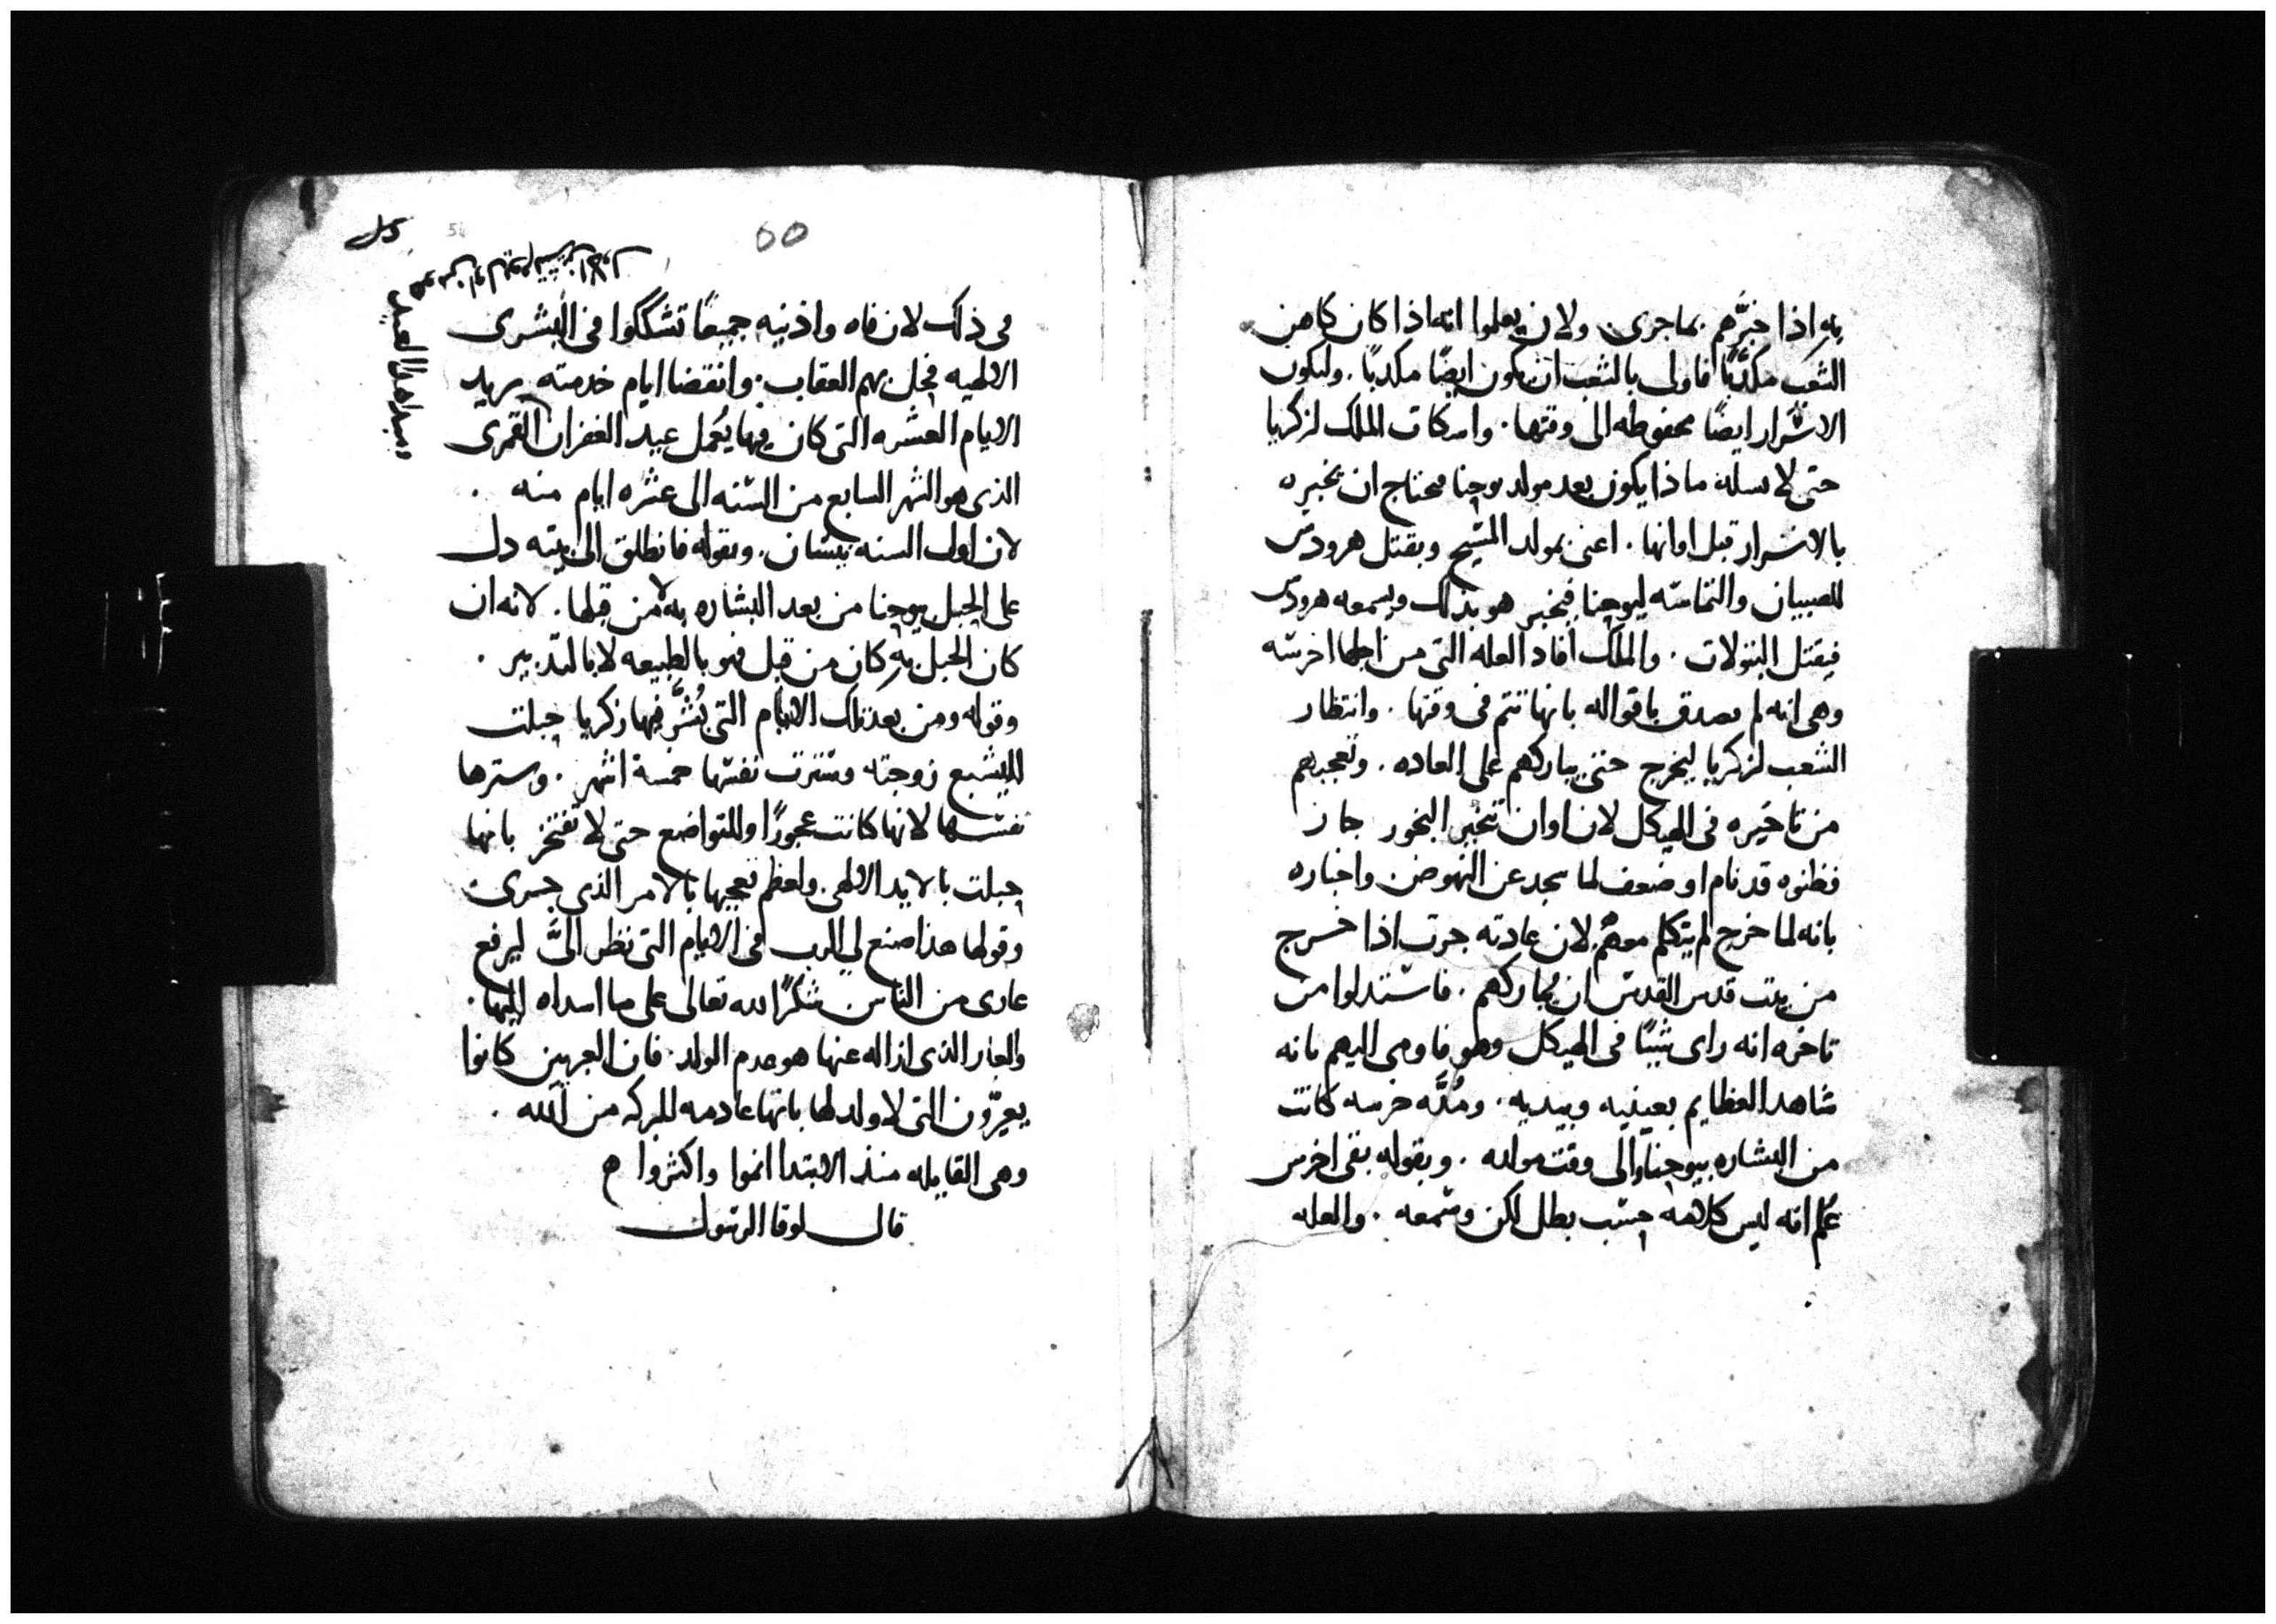 به اذا خبّرهم بما جرى. ولان يعلموا انه اذا كان كاهن
الشعب مكذّبًا فاولى بالشعب ان يكون ايضًا مكذبًا. ولتكون
الاسرار ايضًا محفوظه الى وقتها. واسكات الملك لزكريا
حتى لا يسله ماذا يكون بعد مولد يوحنا فيحتاج ان يخبره
بالاسرار قبل اوانها. اعنى بمولد المسيح وبقتل هرودس
للصبيان والتماسه ليوحنا فيخبر هو بذلك ويسمعه هرودس
فيقتل البتولات. والملك افاد العله التى من اجلها اخرسه
وهى انه لم يصدق باقواله بانها تتم فى وقتها. وانتظار
الشعب لزكريا ليخرج حتى يباركهم على العاده. وتعجبهم
من تاخيره فى الهيكل لان اوان تبخير البخور جاز
فظنوه قد نام او ضعف لما سجد عن النهوض واخباره
بانه لما خرج لم يتكلم معهم لان عادته جرت اذا خرج
من بيت قدس القدس ان يباركهم. فاستدلوا من
تاخره انه راى شيًا فى الهيكل وهو فاومى اليهم بانه
شاهد العظايم بعينيه وبيديه. ومُدَّه خرسه كانت
من البشاره بيوحنا والى وقت مولده. وبقوله بقى اخرس
عُلم انه ليس كلامه حسب بطل لكن وسمعه. والعله
60
فى ذلك لان فاه واذنيه جميعًا تشككوا فى البشرى
الالهيه فحل بهم العقاب. وانقضا ايام خدمته يريد
الايام العشره التى كان فيها يُعمل عيد الغفران القمرى
الذى هو الشهر السابع من السنه الى عشره ايام منه.
لان اول السنه نيسان. وبقوله فانطلق الى بيته دل
على الحبل بيوحنا من بعد البشاره به لا من قبلها. لانه ان
كان الحبل به كان من قبل فهو بالطبيعه لا بالتدبير.
وقوله ومن بعد تلك الايام التى بُشّر فيها زكريا حبلت
اليشبع زوجته وسترت نفسها خمسة اشهر. وسترها
نفسها لانها كانت عجوزًا وللتواضع حتى لا تفتخر بانها
حبلت بالايد الالهى. ولعظم تعجبها بالامر الذى جرى.
وقولها هذا صنع لى الرب فى الايام التى نظر الىَّ ليرفع
عارى من الناس شكرًا لله تعالى على ما اسداه اليها.
والعار الذى ازاله عنها هو عدم الولد. فان العبريين كانوا
يعيّرون التى لا ولد لها بانها عادمه للبركه من الله.
وهى القايله منذ الابتدا انموا واكثروا
قال لوقا الرسول